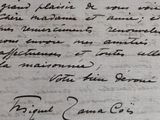 grand plaisir de vous voir
chère madame et amie,
mes remerciements renouvelés
vous envoie ses amitiés
affectueuses, et toutes celles
la maisonnée.
Votre bien dévoué
Miguel Zamacoïs